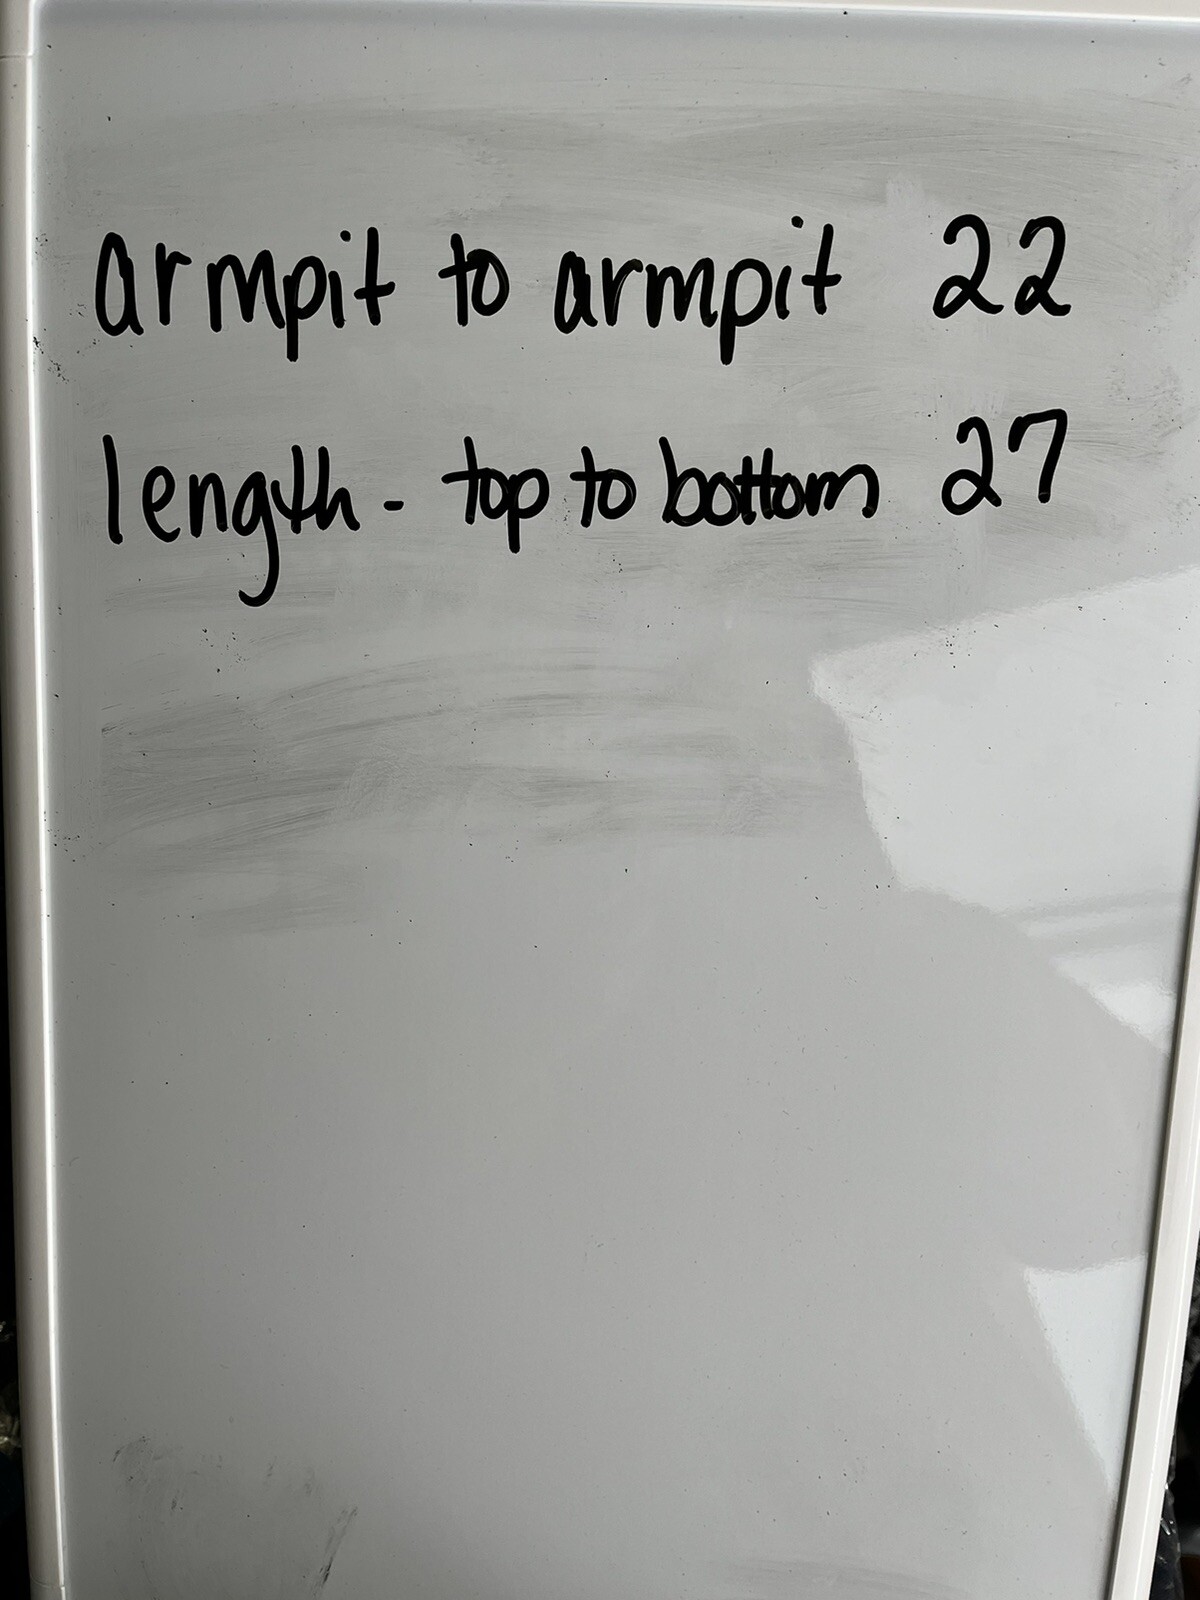 armpit to armpit 22
length - top to bottom 27